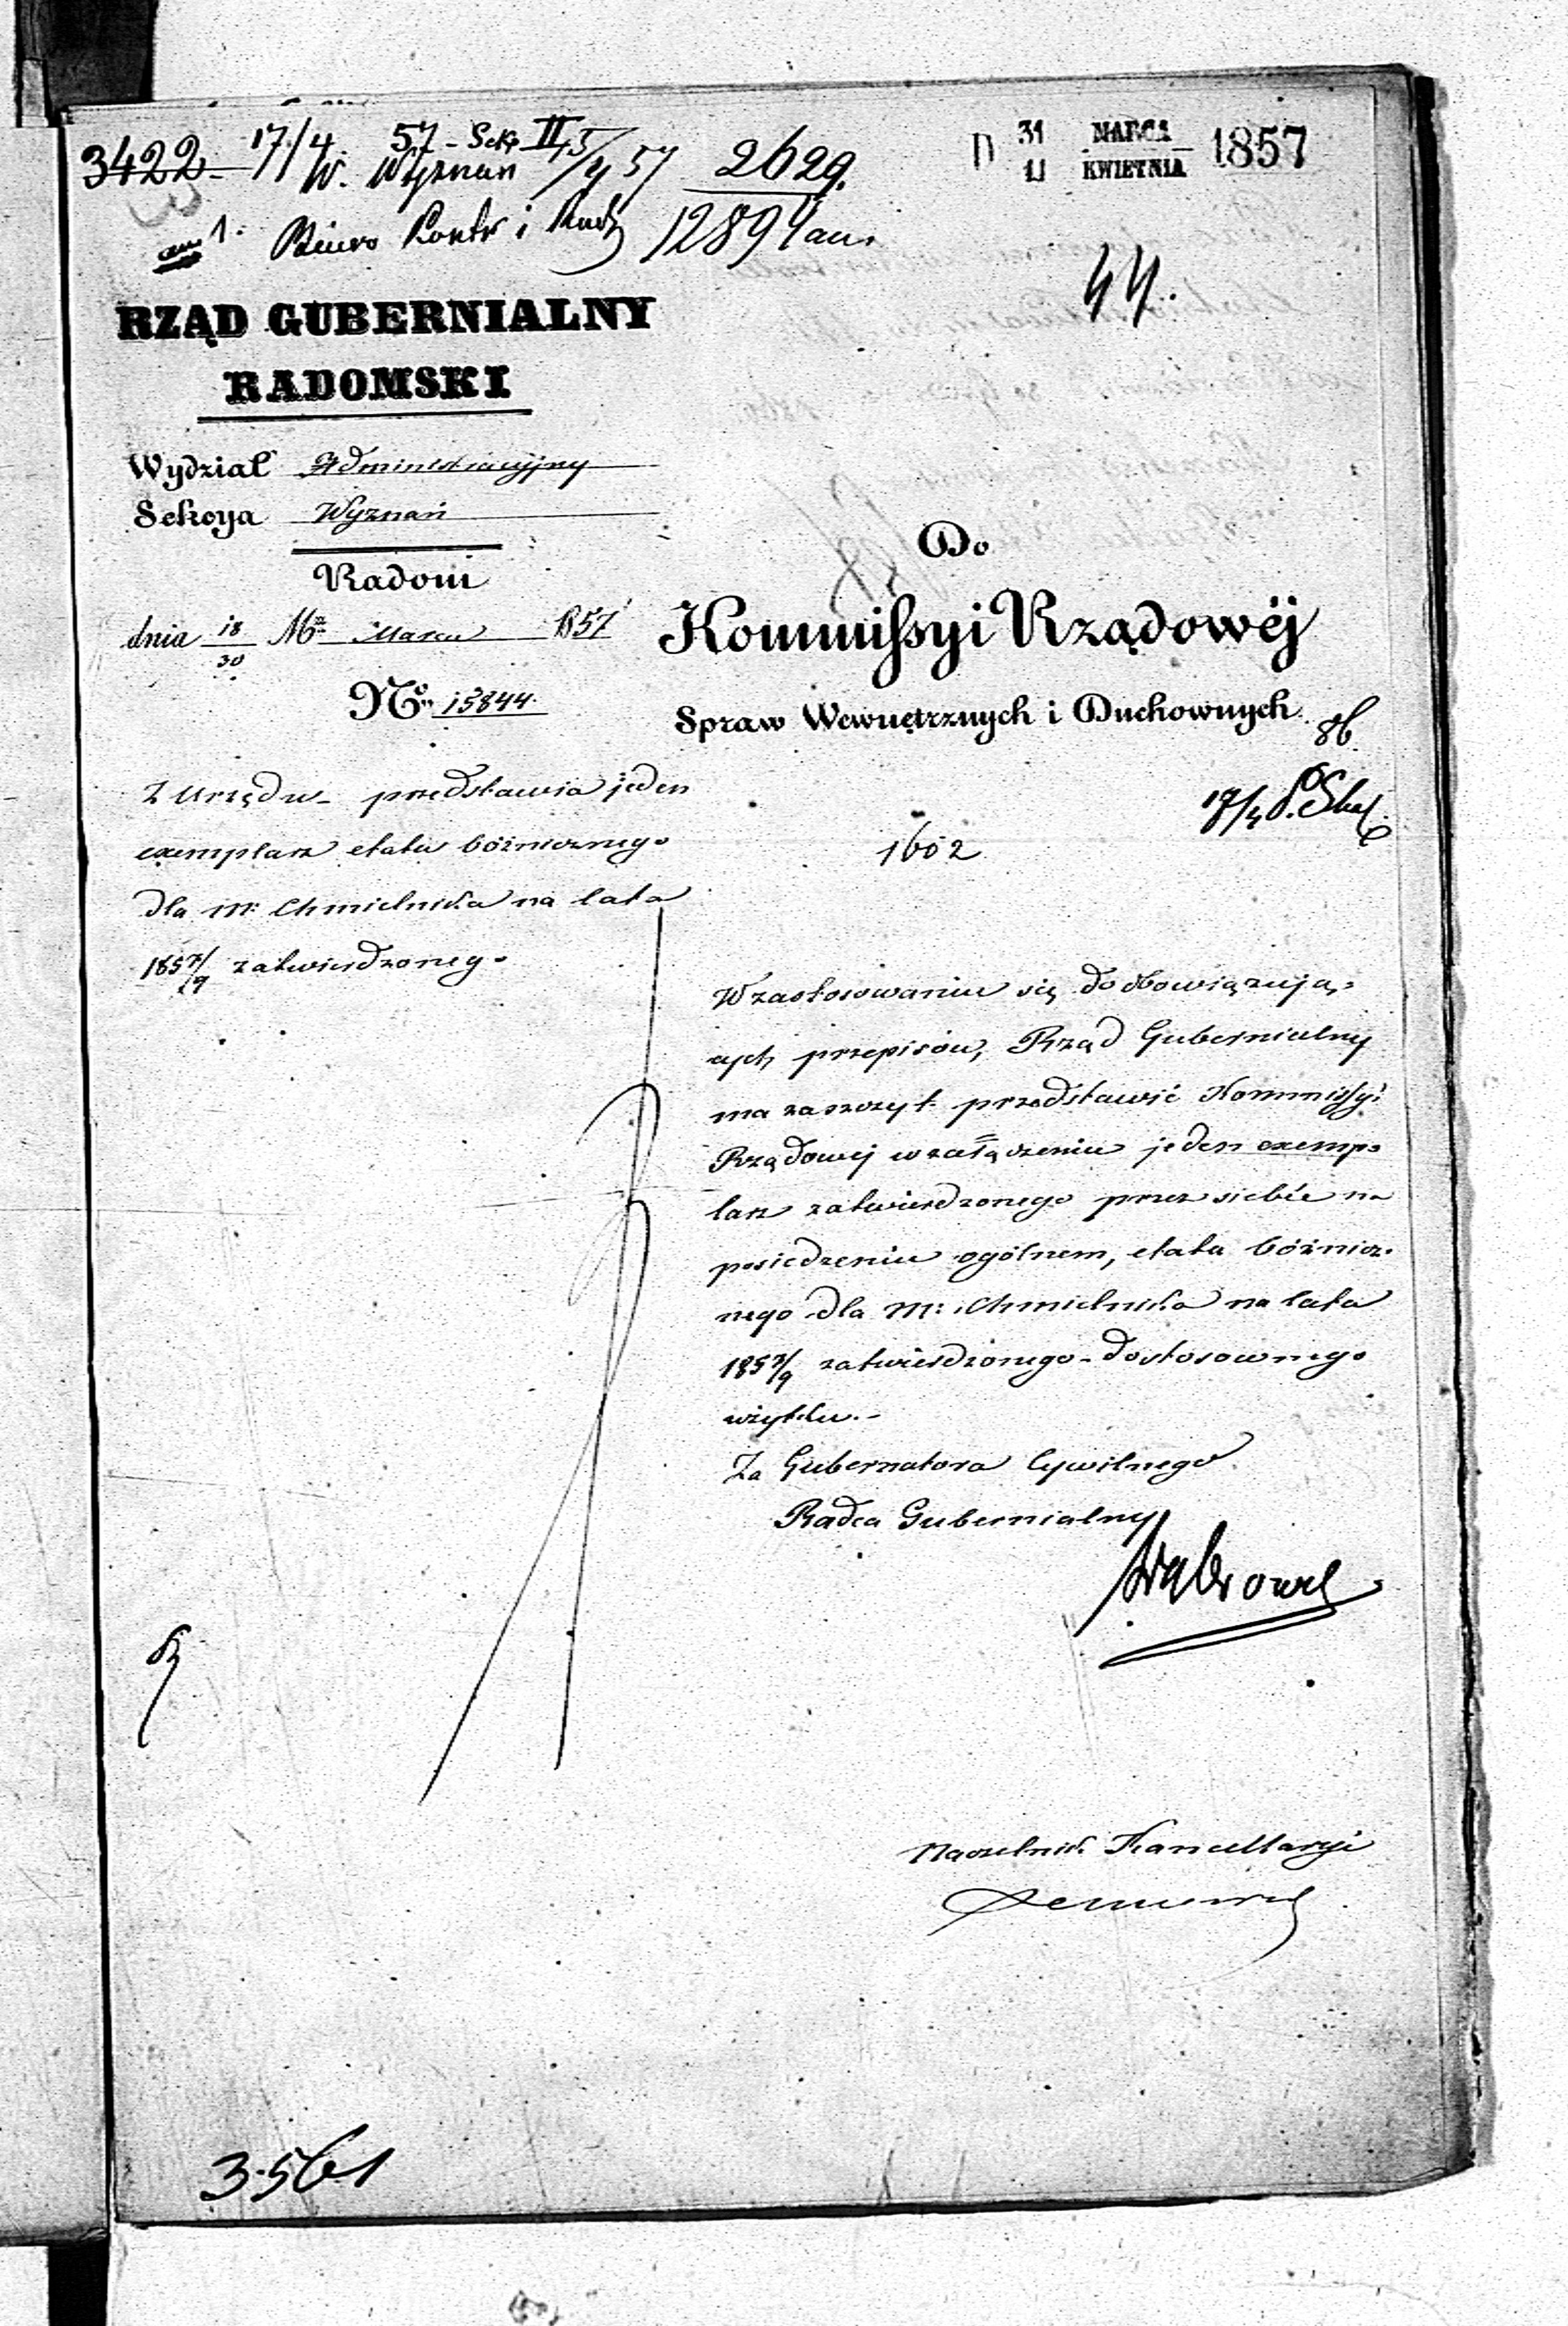 3422 17/4 57 - Sek II 2629.
W. Wyznań 5/4 57
1. Biuro Kontr i 12894
D 31 MARCA 1857
11 KWIETNIA
44.
RZĄD GUBERNIALNY
RADOMSKI
Wydział Administracyjny
Sekcya Wyznań
Radom
dnia 18/30 Mca Marca 1857
No. 15844.
Do
Kommissyi Rządowéj
Spraw Wewnętrznych i Duchownych.
86.
17/4
1602
Z Urzędu przedstawia jeden
exemplarz etatu bóżnicznego
dla m: Chmielnika na lata
1857/9 zatwierdzonego
W zastosowaniu się do obowiązują,,
cych przepisów, Rząd Gubernialny
ma zaszczyt przedstawić Kommissyi
Rządowej w załączeniu jeden exemp,,
larz zatwierdzonego przez siebie na
posiedzeniu ogólnem, etatu bóżnicz,,
nego dla m: Chmielnika na lata
1857/9 zatwierdzonego - do stosownego
użytku. -
Za Gubernatora Cywilnego
Radca Gubernialny
Naczelnik Kancellaryi
3561